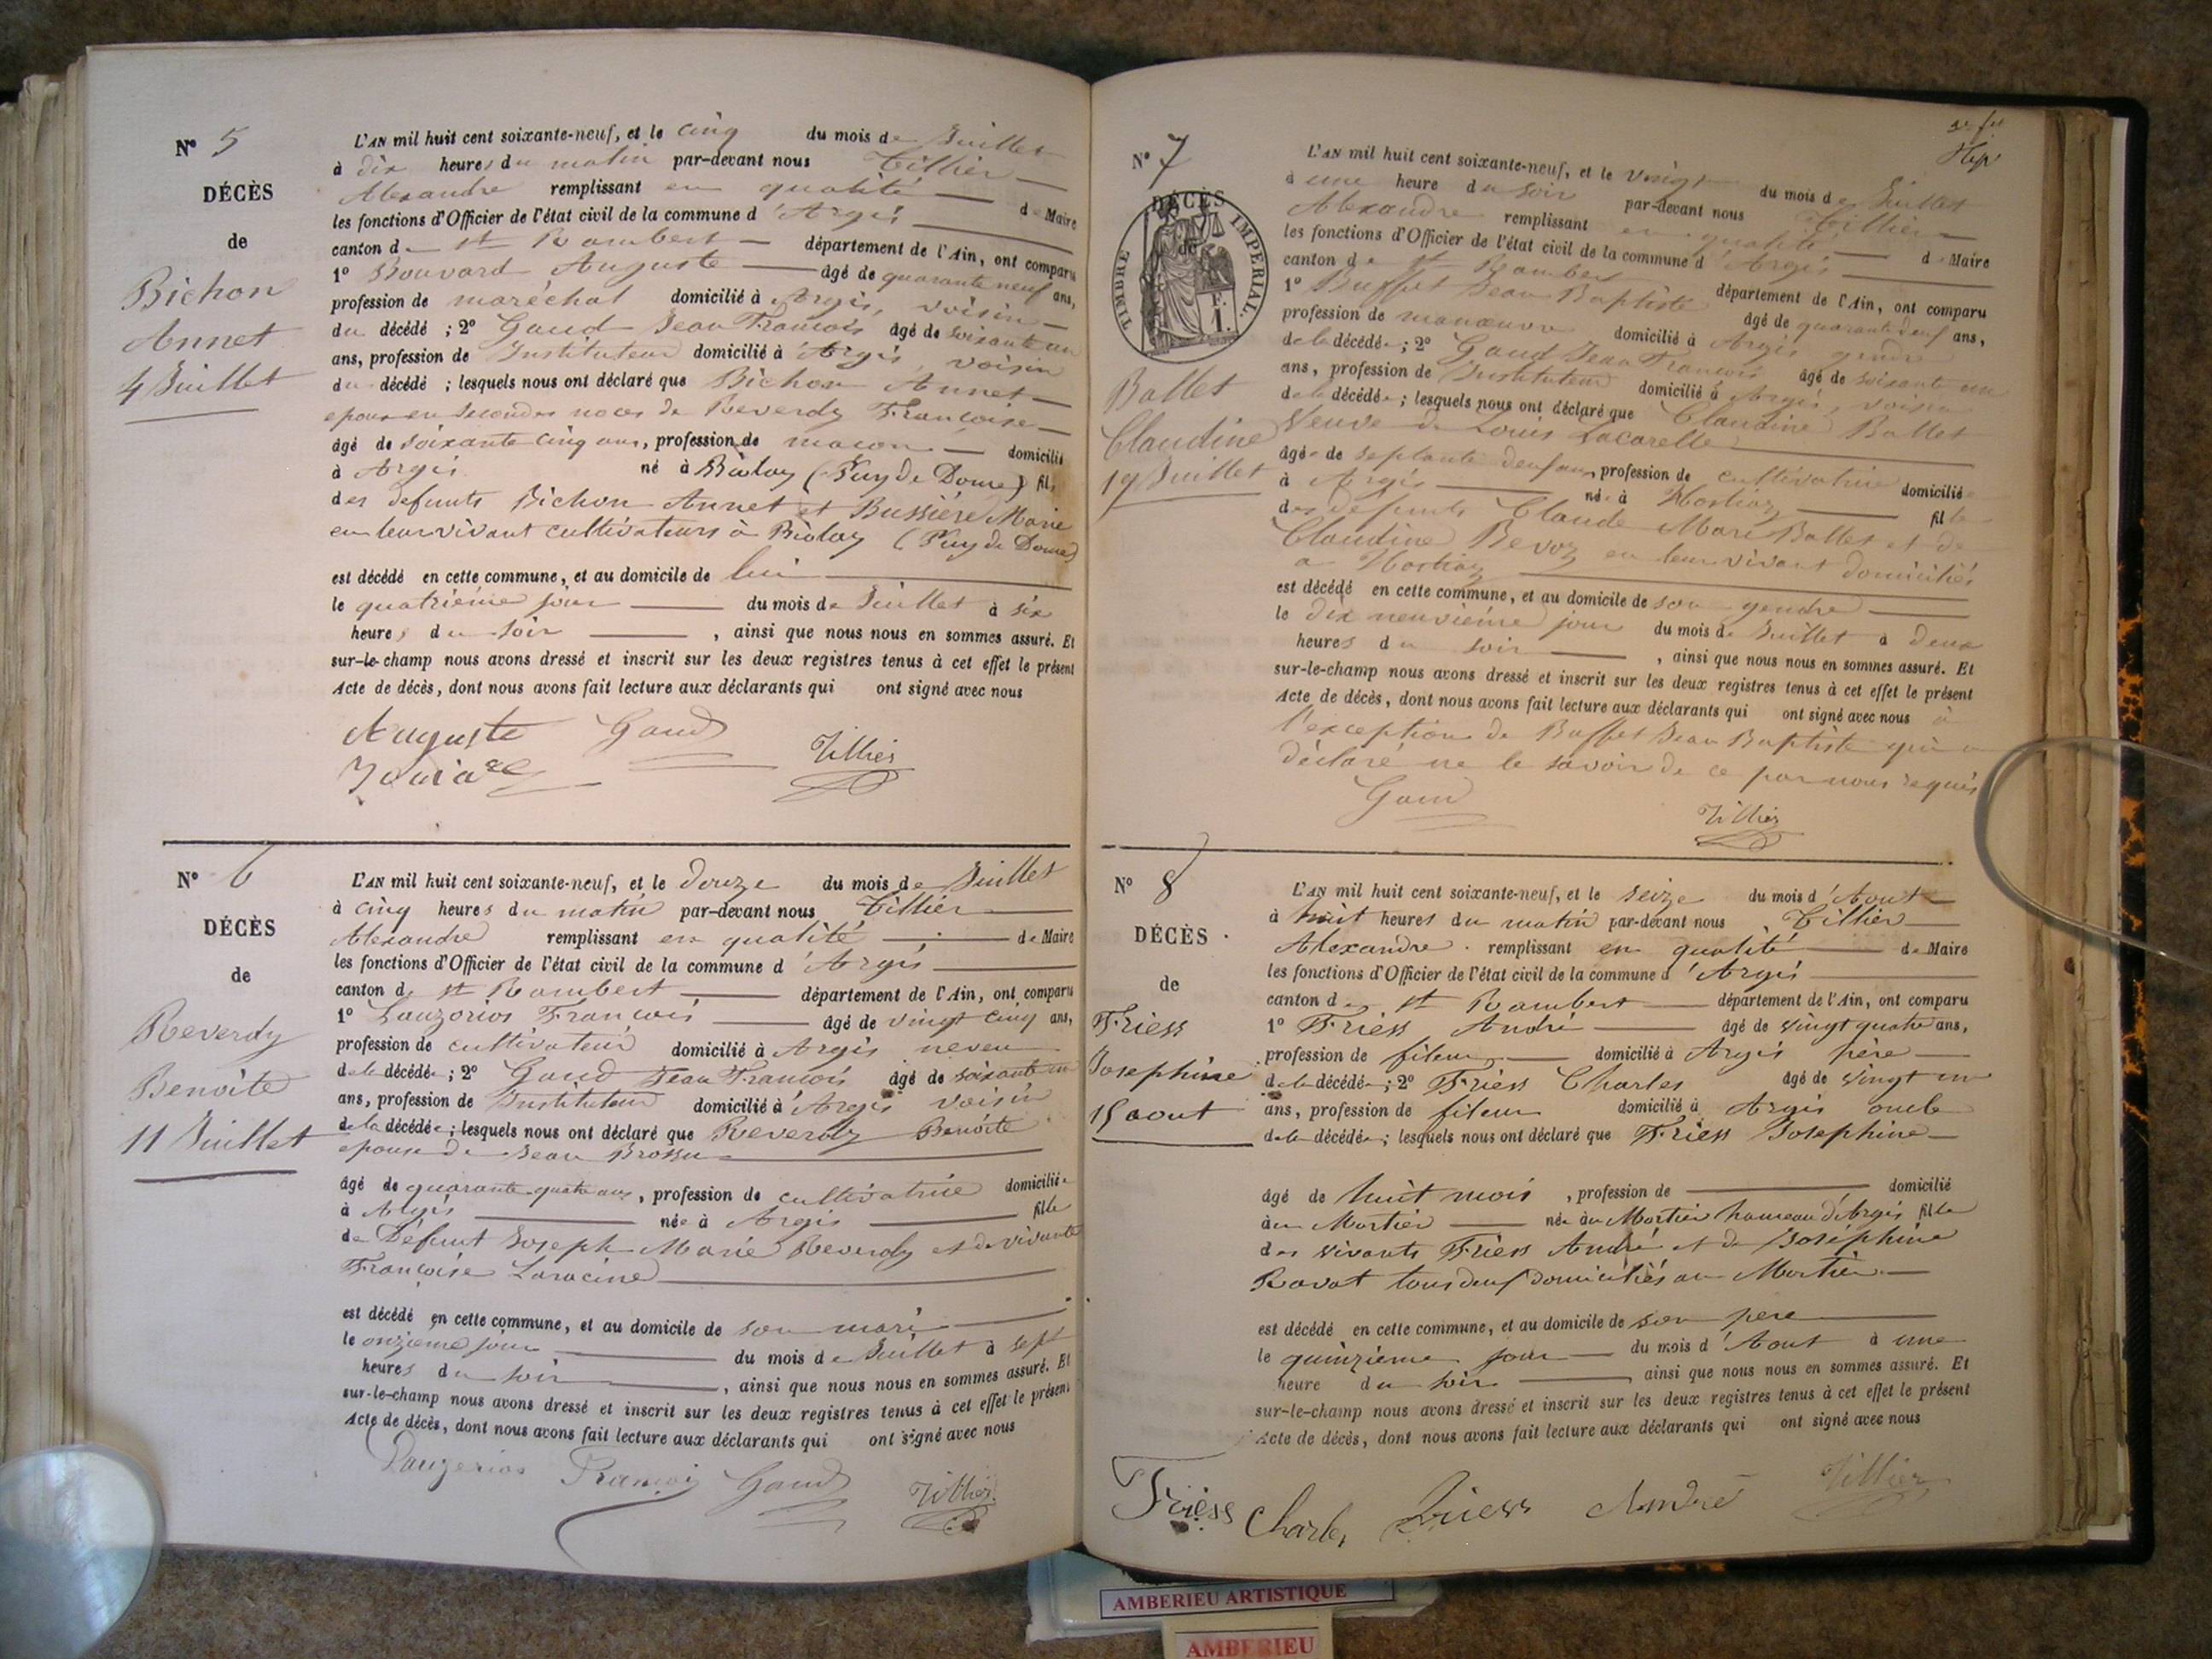 N° 5
DÉCÈS
de
Bichon
Annet
4 Juillet
L'AN mil huit cent soixante-neuf, et le cinq du mois de Juillet
à dix heures du matin par-devant nous Tillier
Alexandre remplissant en qualité de Maire
les fonctions d'Officier de l'état civil de la commune d'Argis
canton de St Rambert département de l'Ain, ont comparu
1° Bouvard Auguste âgé de quarante neuf ans,
profession de maréchal domicilié à Argis, voisin
du décédé ; 2° Gaud Jean François âgé de soixante un
ans, profession de Instituteur domicilié à Argis, voisin
du décédé ; lesquels nous ont déclaré que Bichon Annet
epoux en secondes noces de Reverdy Françoise
âgé de soixante cinq ans, profession de maçon domicilié
à Argis né à Biolay (Puy de Dome) fils
des defunts Bichon Annet et Bussière Marie
en leur vivant cultivateurs à Biolay (Puy de Dome)
est décédé en cette commune, et au domicile de lui
le quatrième jour du mois de Juillet à six
heures du soir , ainsi que nous nous en sommes assuré. Et
sur-le-champ nous avons dressé et inscrit sur les deux registres tenus à cet effet le présent
Acte de décès, dont nous avons fait lecture aux déclarants qui ont signé avec nous
Auguste Gaud Tillier
N° 6
DÉCÈS
de
Reverdy
Benoite
11 Juillet
L'AN mil huit cent soixante-neuf, et le douze du mois de Juillet
à cinq heures du matin par-devant nous Tillier
Alexandre remplissant en qualité de Maire
les fonctions d'Officier de l'état civil de la commune d'Argis
canton de St Rambert département de l'Ain, ont comparu
1° Lauzorios François âgé de vingt cinq ans,
profession de cultivateur domicilié à Argis neveu
de la décédée ; 2° Gaud Jean François âgé de soixante un
ans, profession de Instituteur domicilié à Argis voisin
de la décédée ; lesquels nous ont déclaré que Reverdy Benoite
epouse de Jean Brossu
âgé de quarante quatre ans, profession de cultivatrice domiciliée
à Argis née à Argis fille
de Défunt Joseph Marie Reverdy et de vivante
Françoise Laracine
est décédé en cette commune, et au domicile de son mari
le onzième jour du mois de Juillet à sept
heures du soir , ainsi que nous nous en sommes assuré. Et
sur-le-champ nous avons dressé et inscrit sur les deux registres tenus à cet effet le présent
Acte de décès, dont nous avons fait lecture aux déclarants qui ont signé avec nous
François Gaud Tillier
N° 7
DÉCÈS
de
TIMBRE IMPERIAL.
Ballet
Claudine
19 Juillet
L'AN mil huit cent soixante-neuf, et le vingt du mois de Juillet
à une heure du soir par-devant nous Tillier
Alexandre remplissant en qualité de Maire
les fonctions d'Officier de l'état civil de la commune d'Argis
canton de St Rambert département de l'Ain, ont comparu
1° Buffet Jean Baptiste âgé de quarante deux ans,
profession de manœuvre domicilié à Argis gendre
de la décédée ; 2° Gaud Jean François âgé de soixante un
ans, profession de Instituteur domicilié à Argis, voisin
de la décédée ; lesquels nous ont déclaré que Claudine Ballet
Veuve de Louis Lacarelle
âgée de septante deux ans, profession de cultivatrice domiciliée
à Argis née à Hostiaz fille
des défunts Claude Marie Ballet et de
Claudine Revoz en leur vivant domiciliés
a Hostiaz
est décédé en cette commune, et au domicile de son gendre
le dix neuvième jour du mois de Juillet à deux
heures du soir , ainsi que nous nous en sommes assuré. Et
sur-le-champ nous avons dressé et inscrit sur les deux registres tenus à cet effet le présent
Acte de décès, dont nous avons fait lecture aux déclarants qui ont signé avec nous à
l'exception de Buffet Jean Baptiste qui a
déclaré ne le savoir de ce par nous requis
Gaud Tillier
N° 8
DÉCÈS
de
Friess
Josephine
15 aout
L'AN mil huit cent soixante-neuf, et le seize du mois d'Aout
à huit heures du matin par-devant nous Tillier
Alexandre remplissant en qualité de Maire
les fonctions d'Officier de l'état civil de la commune d'Argis
canton de St Rambert département de l'Ain, ont comparu
1° Friess André âgé de vingt quatre ans,
profession de fileur domicilié à Argis père
de la décédée ; 2° Friess Charles âgé de vingt un
ans, profession de fileur domicilié à Argis oncle
de la décédée ; lesquels nous ont déclaré que Friess Josephine
âgé de huit mois , profession de domicilié
au Mortier née au Mortier hameau d'Argis fille
des vivants Friess André et de Joséphine
Ravat tous deux domiciliés au Mortier
est décédé en cette commune, et au domicile de son pere
le quinzieme jour du mois d'Aout à une
heure du soir ainsi que nous nous en sommes assuré. Et
sur-le-champ nous avons dressé et inscrit sur les deux registres tenus à cet effet le présent
Acte de décès, dont nous avons fait lecture aux déclarants qui ont signé avec nous
Friess Charles Friess André Tillier
AMBERIEU ARTISTIQUE
AMBERIEU